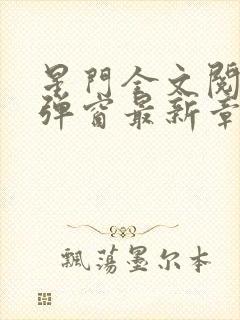 星門全文閱
彈窗最新章
飄蕩墨尔本